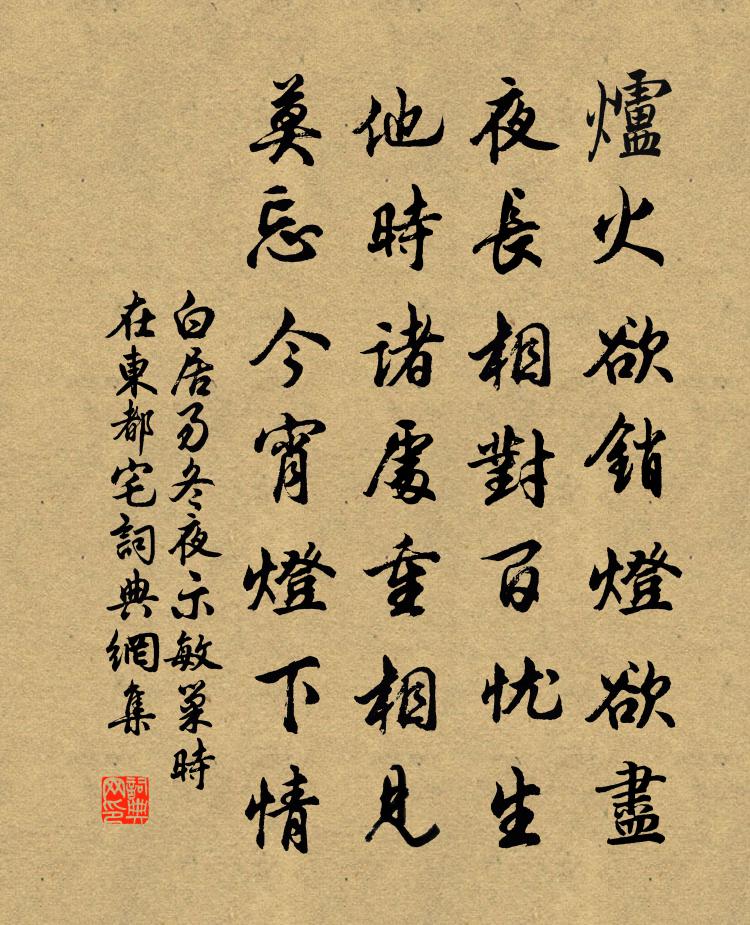 爐火欲銷燈欲盡
夜長相對百忧生
他時諸處重相見
莫忘今宵燈下情
白居易冬夜示敏巢時
在東都宅詞典網集
詞典网印